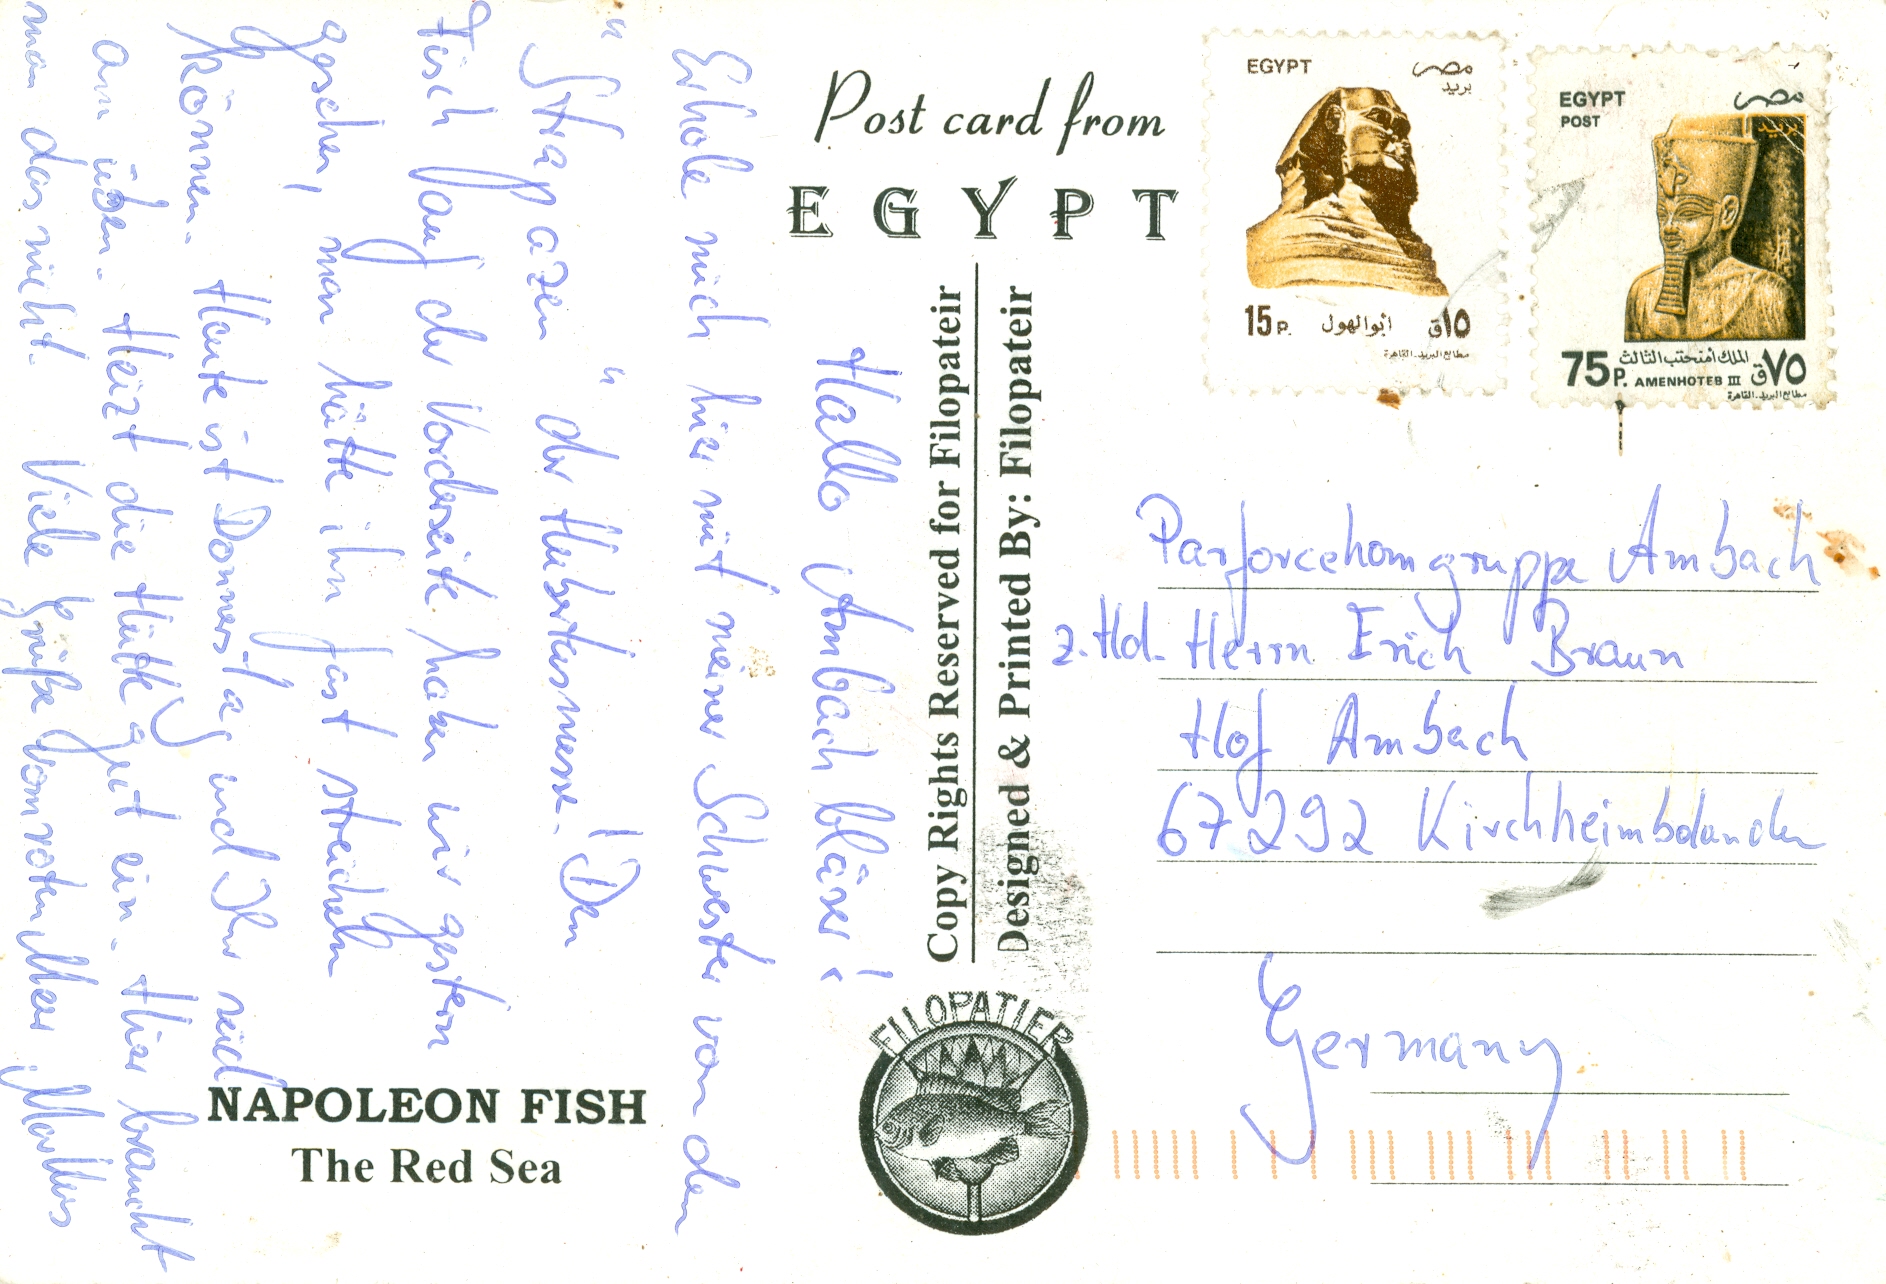 Hallo Ambachbläser!
Erhole mich hier mit meiner Schwester von den
"Strapazen" der Hubertusmesse. Den
Fisch auf der Vorderseite haben wir gestern
gesehen, man hätte ihn fast streicheln
können. Heute ist Donnerstag und Ihr seid
am üben. Heizt die Hütte gut ein. Hier braucht
man das nicht. Viele Grüße vom roten Meer
NAPOLEON FISH
The Red Sea
Post card from
EGYPT
Copy Rights Reserved for Filopateir
Designed & Printed By: Filopateir
FILOPATIER
EGYPT
مصر
بريد
15 P.
أبوالهول
١٥ق
مطابع البريد.القاهرة
EGYPT
POST
مصر
بريد
75 P.
الملك أمنحتب الثالث
AMENHOTEB III
٧٥ق
مطابع البريد.القاهرة
Parforcehorngruppe Ambach
z.Hd. Herrn Erich Braun
Hof Ambach
67292 Kirchheimbolanden
Germany